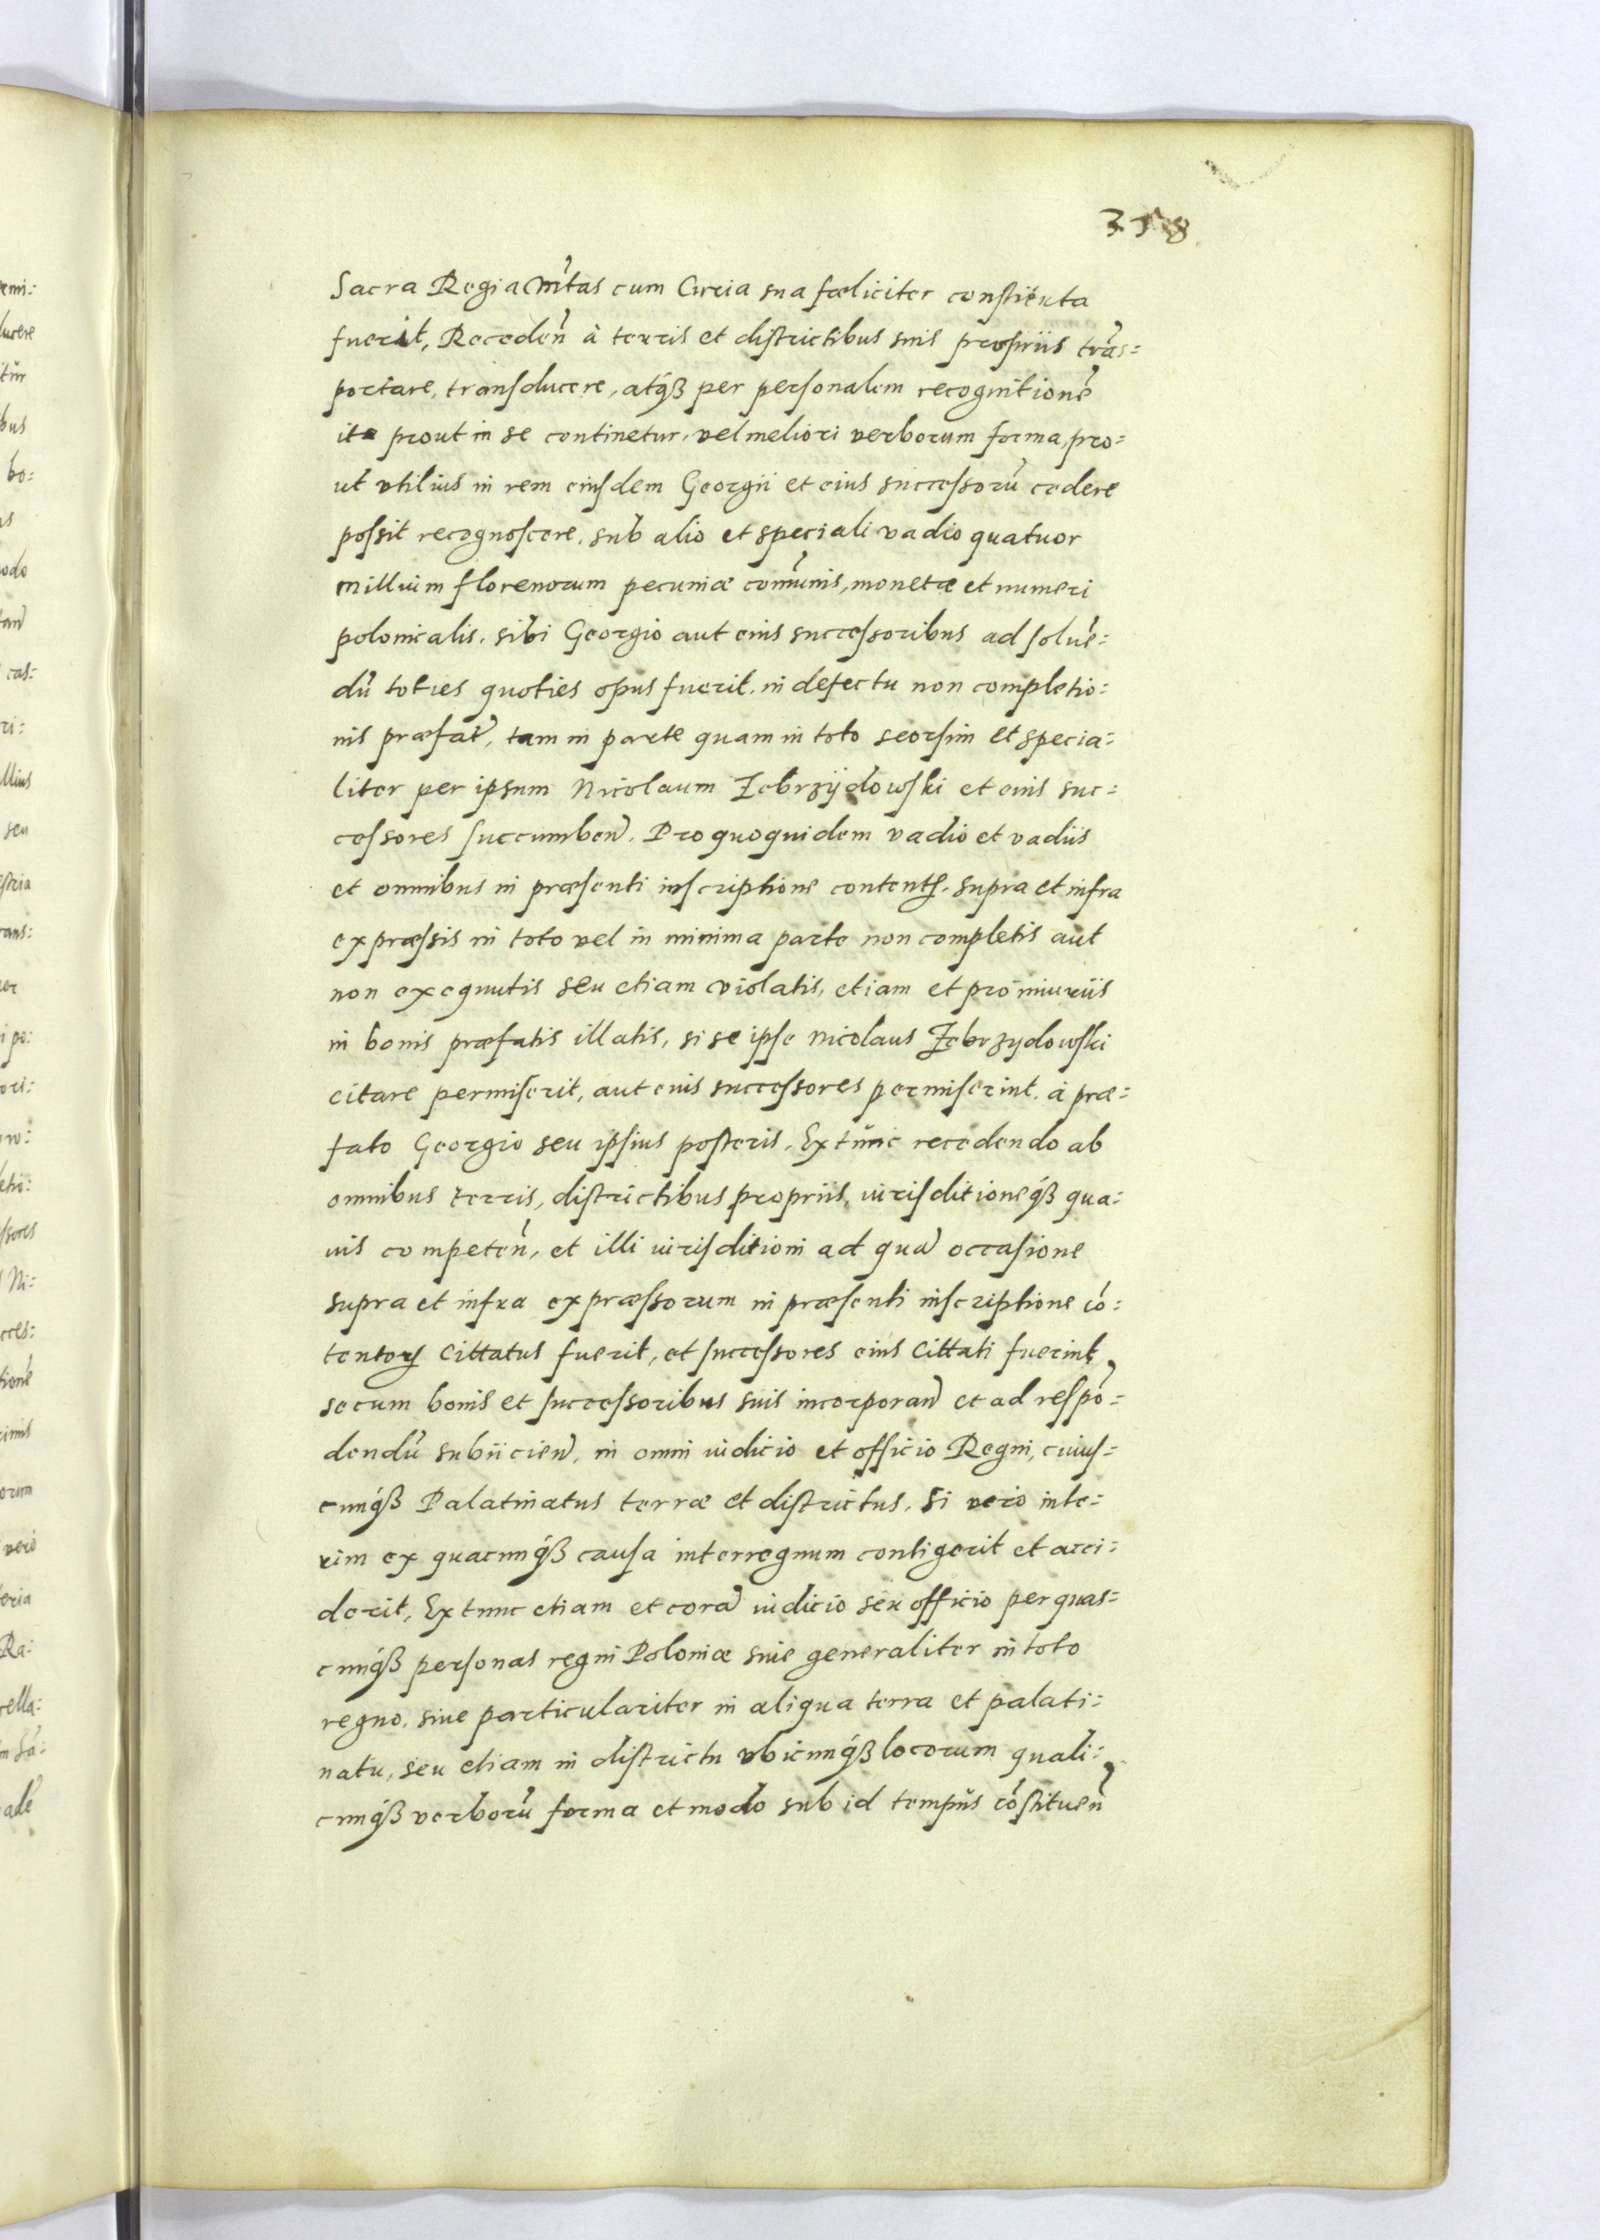 358
Sacra Regia Mtas cum Curia sua fœliciter constituta
fuerit, Receden̄ à terris et districtibus suis proprijs trās=
portare, transducere, atq́ꝫ per personalem recognitionē
ita prout in se continetur, vel meliori verborum forma, pro=
ut vtilius in rem eiusdem Georgii et eius successorū cedere
possit recognoscere, sub alio et speciali vadio quatuor
millium florenorum pecuniæ com̄unis, monetæ et numeri
polonicalis, sibi Georgio aut eius successoribus ad soluē=
dū toties quoties opus fuerit, in defectu non completio=
nis præfat̄, tam in parte quam in toto seorsim et specia=
liter per ipsum Nicolaum Zebrzÿdowski et eius suc=
cessores succumben̄. Pro quoquidem vadio et vadiis
et omnibus in præsenti inscriptione contentꝭ, supra et infra
expræssis in toto vel in minima parte non completis aut
non exequutis seu etiam violatis, etiam et pro iniuriis
in bonis præfatis illatis, si se ipse Nicolaus Zebrzydowski
citare permiserit, aut eius successores permiserint, à præ=
fato Georgio seu ipsius posteris, Extūnc recedendo ab
omnibus terris, districtibus propriis, iurisditioneq́ꝫ qua=
uis competen̄, et illi iurisditioni ad quā occasione
supra et infra expræssorum in præsenti inscriptione cō=
tentoꝝ cittatus fuerit, et successores eius cittati fuerint,
secum bonis et successoribus suis incorporan̄ et ad respō=
dendū subiicien̄, in omni iudicio et officio Regni, cuius=
cunq́ꝫ Palatinatus terræ et districtus, Si vero inte=
rim ex quacunq́ꝫ causa interregnum contigerit et acci=
derit, Extunc etiam et corā iudicio seu officio per quas=
cunq́ꝫ personas regni Poloniæ siue generaliter in toto
regno, siue particulariter in aliqua terra et palati=
natu, seu etiam in districtu vbicunq́ꝫ locorum quali=
cunq́ꝫ verborū forma et modo sub id tempus cōstituen̄